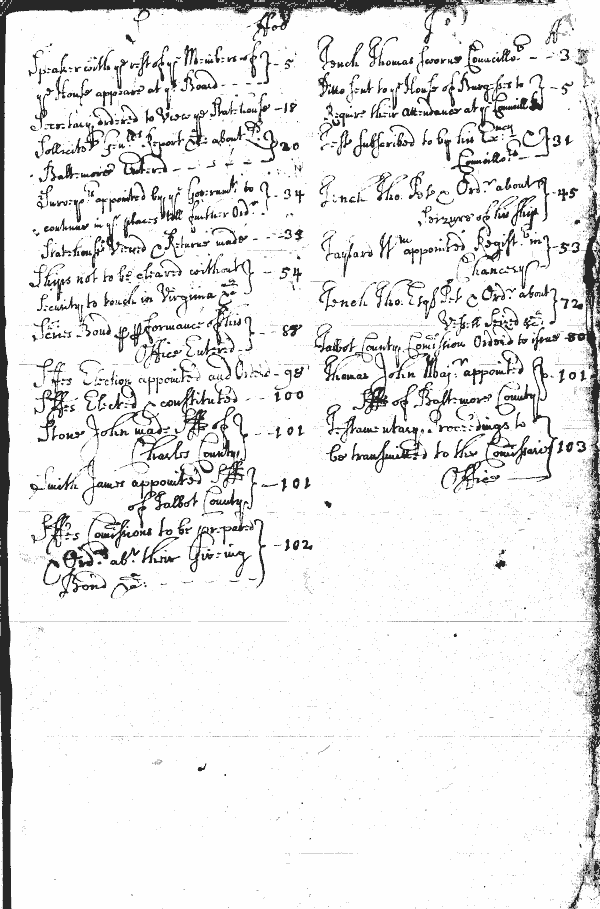 S
ffol
Speaker with ye rest of ye Members of
ye House appeare at ye Board - 5
Secretary ordered to View ye Statehouse - 18
Sollicitrs Genlls Report &c about Ld
Baltemore Entered - 20
Surveyrs appointed by ye Governr to
continue in ye places till further Ordr - 34
Statehouse Viewed & Returne made - 35
Ships not to be cleared without
Security to touch in Virginia &c - 54
Series Bond for pformance of his
Office Entered - 88
Sffes Election appointed and Orders - 98
Sffes Elected & constituted - 100
Stone John made Sffe of
Charles County - 101
Smith James appointed Sffe
of Talbot County - 101
Sffes Comissions to be prepared
& Ordr abt their Giveing
Bond &c - 102
T
ff
Tench Thomas sworne Councillor - 3
Ditto sent to ye House of Burgesses to
Require their Attendance at ye Councill - 5
Test subscribed to by his Excncy &
Councillors - 31
Tench Tho: Pet & Ordr about
Seizure of his Ship - 45
Taylard Wm appointed Registr in
Chancery - 53
Tench Tho. Esqr Pet & Ordr about
Vessell Seized &c - 72
Talbot County Comission Ordered to issue - 80
Thomas John Mayr appointed
Sffe of Baltemore County - 101
Testamentary Proceedings to
be transmitted to the Comissaries
Office - 103